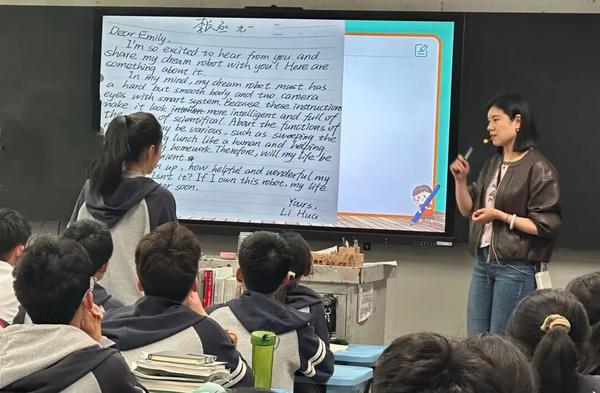 Dear Emily,
I'm so excited to hear from you and
share my dream robot with you! Here are
something about it.
In my mind, my dream robot must has
a hard but smooth body and two camera
eyes with smart system. Because these instructions
make it look more intelligent and full of
the of scientifical. About the functions of
may be various, such as sweeping the
lunch like a human and helping
homework. Therefore, will my life be
up, how helpful and wonderful my
isn't it? If I own this robot, my life
soon.
Yours,
Li Hua